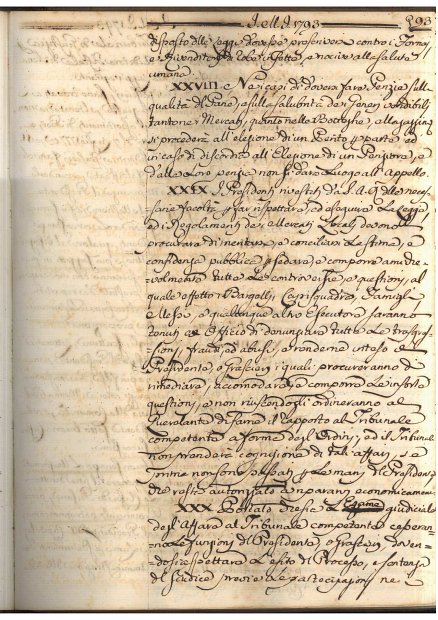 A dì 1793 293
disposto dalle Leggi dovesse proscriversi contro i Fornari
e Rivenditori di Robe infette, e nocive alla salute
umana.
XXVIII. Ne' casi di dover fare Perizie sulla
qualità di Pane, e sulla salubrità dei generi
tanto ne' Mercati, quanto nelle Botteghe,
si procederà all' elezione d'un Perito per parte, ed
in caso di discordia all' Elezione di un Periziore, e
dalle Loro perizie non si darà Luogo all' Appello.
XXIX. I Presidenti rivestiti da S. A. S. delle neces-
sarie facoltà per far rispettare, ed eseguire Le Leggi
ed i Regolamenti dei Mercati Locali dovranno
procurare di meritare, e conciliare La stima, e
confidenza pubblica per sedare, e comporre amiche-
volmente tutte Le controversie, e questioni, al
quale effetto i Bargelli, Capisquadra, Famigli
e Messi, e qualunque altro Esecutore saranno
tenuti ex Officio di denunziare tutte Le trasgres-
sioni, fraudi, ed abusi, e renderne inteso il
Presidente, o Grascieri i quali procureranno di
rimediare, accomodare, e comporre Le insorte
questioni, e non riuscendogli ordineranno al
Querelante di farne il rapporto al Tribunale
competente a forma degl' Ordini, ed il Tribunale
non prenderà cognizione di tali affari, se
prima non sono passati per Le mani del Presidente
che resta autorizzato a ripararvi economicamente
XXX. Portato che sia L' Esame giudiciale
degl' Affari al Tribunale competente cesseran-
no Le funzioni del Presidente, o Grascieri, doven-
dosi rispettare L' esito di Processo, e sentenza
del Giudice previe Le partecipazioni ne'